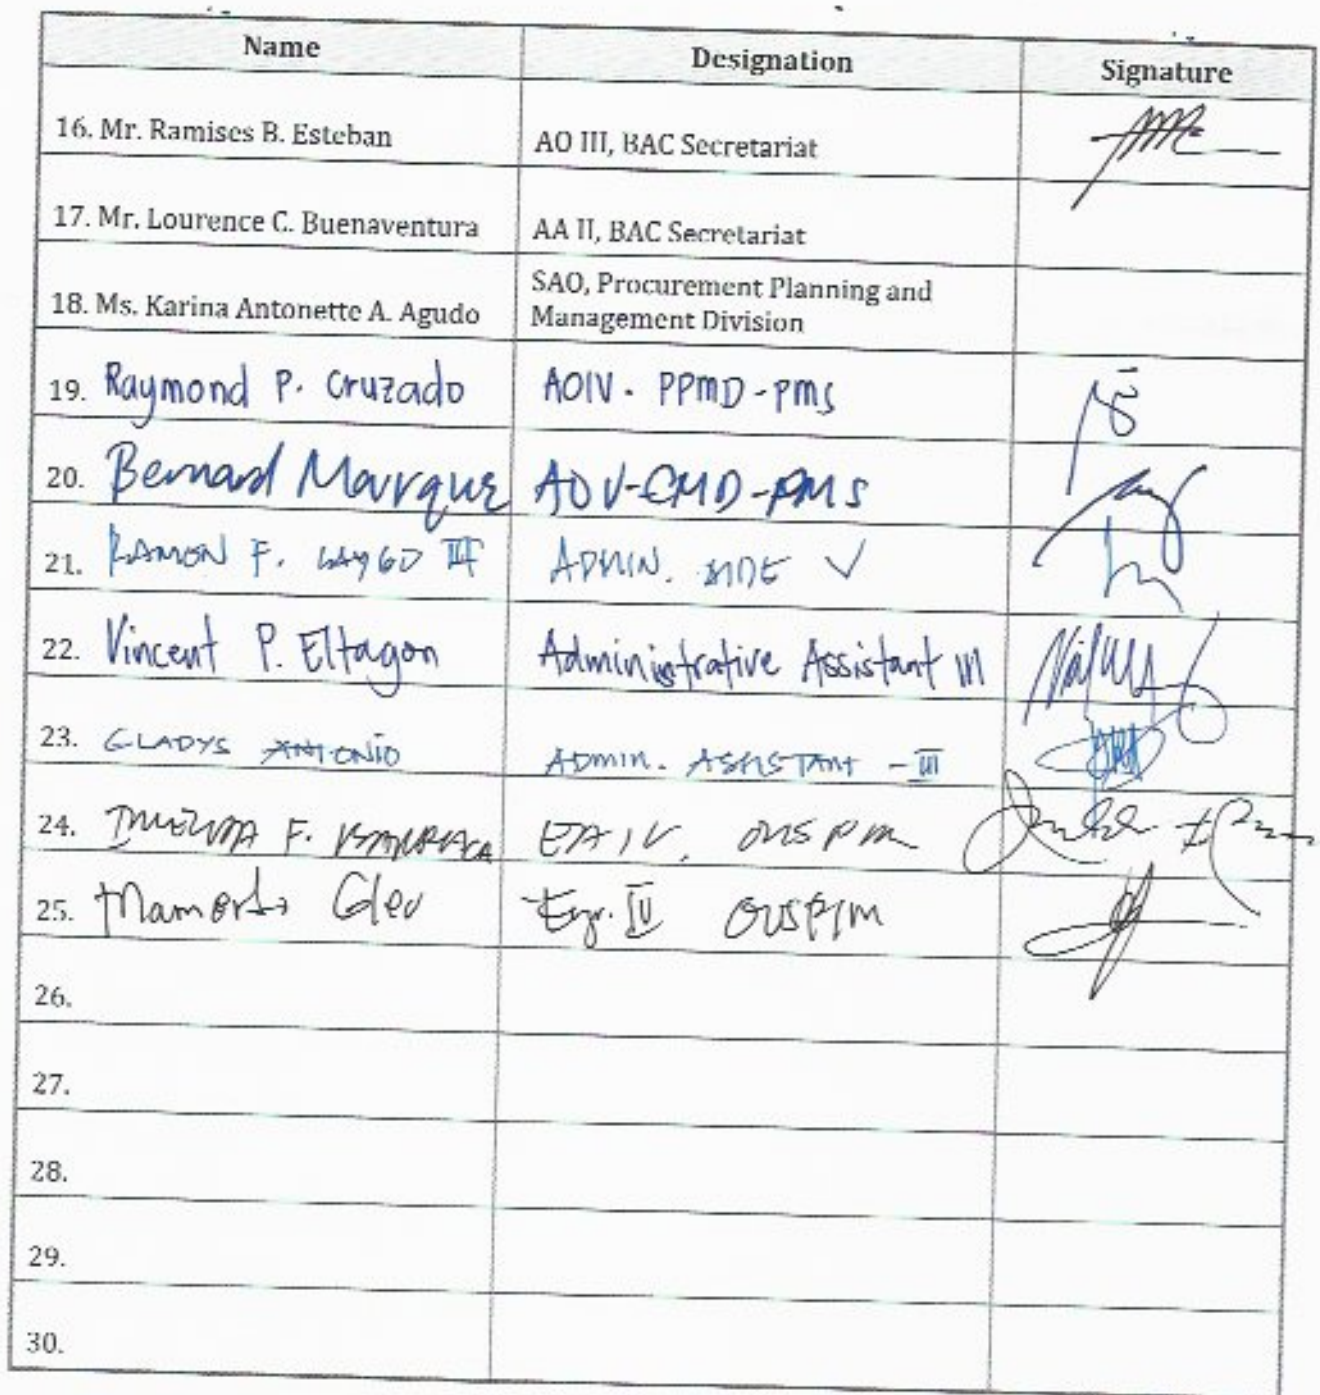 Name Designation Signature
16. Mr. Ramises B. Esteban AO III, BAC Secretariat
17. Mr. Lourence C. Buenaventura AA II, BAC Secretariat
18. Ms. Karina Antonette A. Agudo SAO, Procurement Planning and
Management Division
19. Raymond P. Cruzado AOIV. PPMD-PMS
20. Bernard Marquez AOV-CMD-PMS
21. RAMON F. LAYGO III ADMIN. AIDE V
22. Vincent P. Eltagon Administrative Assistant III
23. GLADYS ANTONIO ADMIN. ASSISTANT - III
24. F. EA IV, OUSPIM
25. Mamerto IV OUSPIM
26.
27.
28.
29.
30.